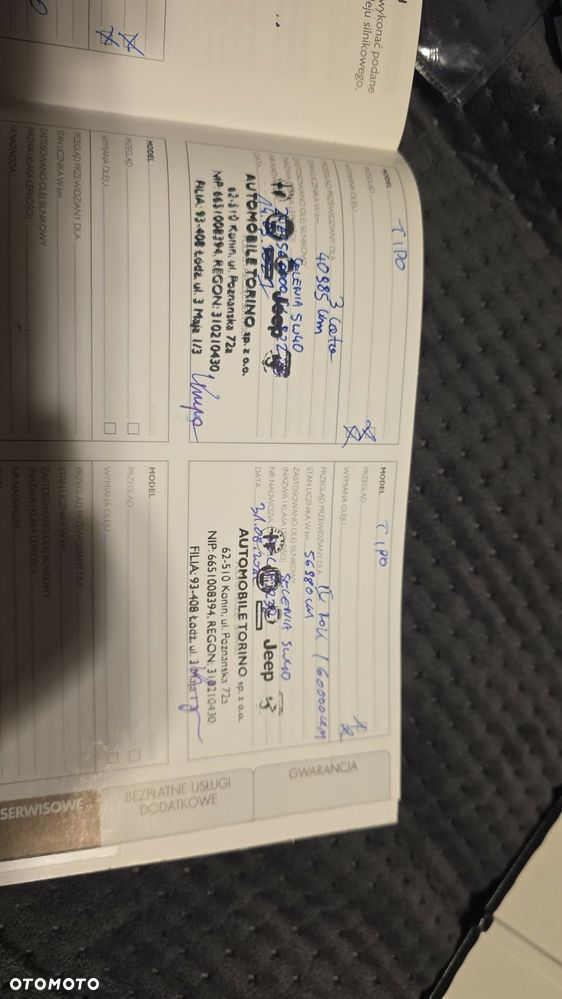 wykonać podane
eju silnikowego,
MODEL TIPO
PRZEGLĄD
WYMIANA OLEJU
PRZEGLĄD PRZEWIDZIANY DLA 3 lata
STAN LICZNIKA W km 40985 km
ZASTOSOWANO OLEJ SILNIKOWY
(NAZWA I KLASA LEPKOŚCI) SELENIA 5W40
NR NADWOZIA
DATA
Jeep
AUTOMOBILE TORINO sp. z o.o.
62-510 Konin, ul. Poznańska 72a
NIP: 6651008394, REGON: 310210430
FILIA: 93-408 Łódź, ul. 3 Maja 1/3
MODEL TIPO
PRZEGLĄD
WYMIANA OLEJU
PRZEGLĄD PRZEWIDZIANY DLA IV ROK / 60000 km
STAN LICZNIKA W km 56980 km
ZASTOSOWANO OLEJ SILNIKOWY
(NAZWA I KLASA LEPKOŚCI) SELENIA 5W40
NR NADWOZIA
DATA
Jeep
AUTOMOBILE TORINO sp. z o.o.
62-510 Konin, ul. Poznańska 72a
NIP: 6651008394, REGON: 310210430
FILIA: 93-408 Łódź, ul. 3
MODEL
PRZEGLĄD
WYMIANA OLEJU
PRZEGLĄD PRZEWIDZIANY DLA
STAN LICZNIKA W km
ZASTOSOWANO OLEJ SILNIKOWY
(NAZWA I KLASA LEPKOŚCI)
NR NADWOZIA
MODEL
PRZEGLĄD
WYMIANA OLEJU
PRZEGLĄD PRZEWIDZIANY DLA
STAN LICZNIKA W km
ZASTOSOWANO OLEJ SILNIKOWY
(NAZWA I KLASA LEPKOŚCI)
NR NADWOZIA
GWARANCJA
BEZPŁATNE USŁUGI
DODATKOWE
SERWISOWE
OTOMOTO